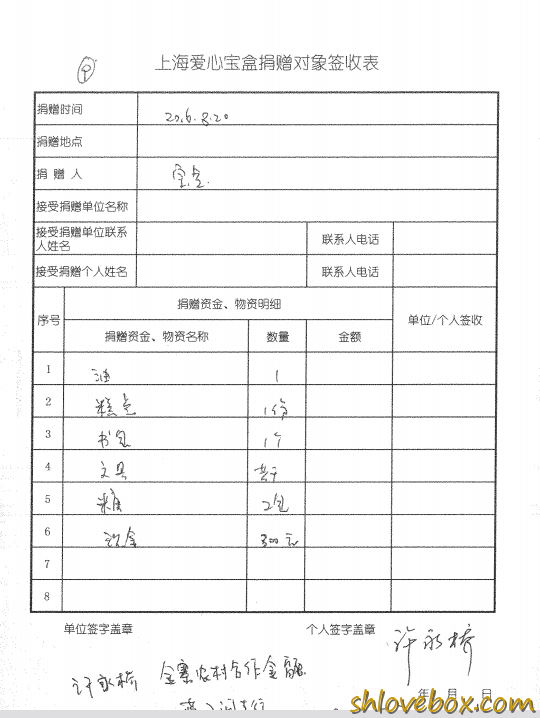 上海爱心宝盒捐赠对象签收表
捐赠时间 2016.8.20
捐赠地点
捐 赠 人 宝盒
接受捐赠单位名称
接受捐赠单位联系人姓名 联系人电话
接受捐赠个人姓名 联系人电话
序号 捐赠资金、物资明细 单位/个人签收
捐赠资金、物资名称 数量 金额
1 油 1
2 糕点 1份
3 书包 1个
4 文具 若干
5 2包
6 现金 300元
7
8
单位签字盖章 个人签字盖章 许永桥
许永桥 金寨农村合作金融
年 月 日
shlovebox.com